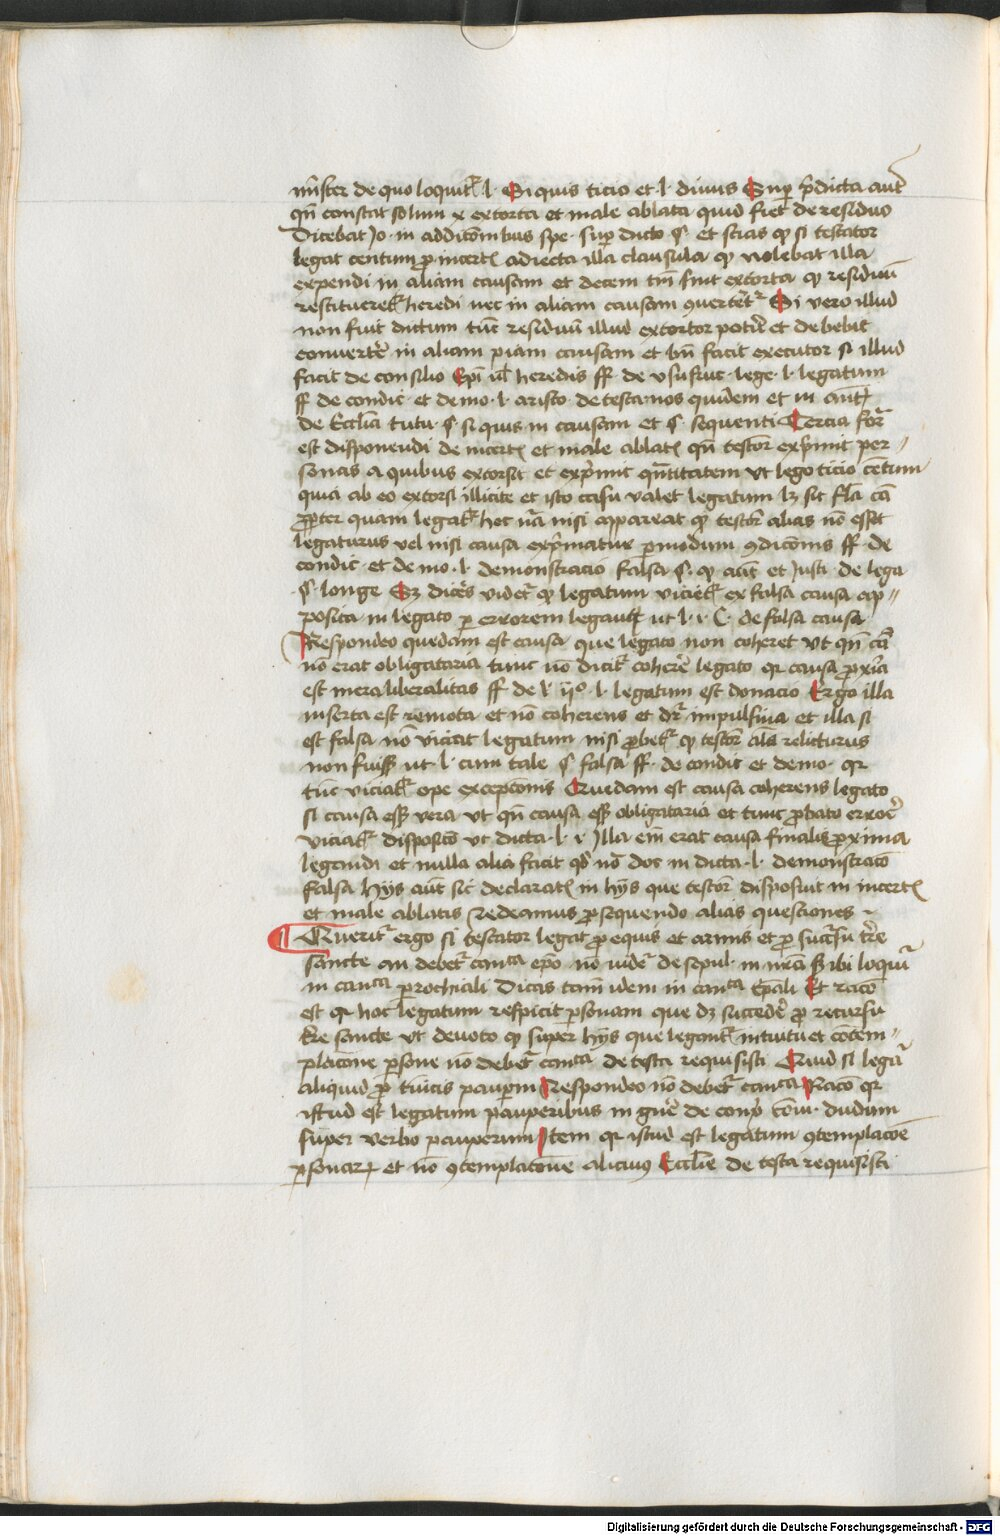 mīster de quo loquit᷑ l. Si quis ticio et l. diuus Sup p̄dicta aut̄
qn̄ constat solum x extorta et male ablata quid fiet de residuo
Dicebat Jo. in addicōnibus spe. sup dicto §. et scias qꝫ si testator
legat centum ꝓ incert᷑ adiecta illa clausula qꝫ nolebat illa
expendi in aliam causam et decem tm̄ fuit extorta qꝫ residuū
restitueret᷑ heredi nec in aliam causam ꝯuertet᷑ Si vero illud
non fuit dictum tūc residuū illud extortor pot̄it et debebit
conuert̄e in aliam piam causam et bn̄ facit executor si illud
facit de consilio Ep̄i ul̄ heredis ff. de vsufruc. lege. l. legatum
ff de condic. et demo. l. aristo. de testa. nos quidem et in aut̄
de Ecclīa. tutu. §. si quis in causam et §. sequenti Tercia for̄
est disponendi de incert᷑ et male ablat᷑ qn̄ testor̄ exp̄mit per-
sonas a quibus extorsit et exp̄mit qn̄titatem vt lego ticio cētum
quia ab eo extorsi illicite et isto casu valet legatum lꝫ sit fla cā
ꝓpter quam legat᷑ hec n̄a nisi appareat qꝫ testor̄ alias nō esset
legaturus vel nisi causa exp̄matur ꝑ modum ꝯdicōnis ff. de
condic. et demo. l. demonstracio falsa §. qꝫ aut̄ et Justi. de lega
§. longe Sꝫ dic̄es videt᷑ qꝫ legatum viciet᷑ ex falsa causa ap-
posita in legato ꝑ errorem legant᷑ ut l. i. C. de falsa causa
Respondeo quedam est causa que legato non coheret vt qn̄ cā
nō erat obligataria tunc nō dicit᷑ coher̄e legato qr causa ꝓxīa
est mera liberalitas ff de l. ij.º l. legatum est donacio Ergo illa
inserta est remota et nō coherens et dr̄ impulsiua et illa si
est falsa nō viciat legatum nisi ꝓbet᷑ qꝫ testor̄ al̄s relicturus
non fuiss ut l. cum tale §. falsa ff. de condic et demo. qr
tūc viciat᷑ ope excepcōnis Quedam est causa coherens legato
si causa ess vera vt qn̄ causa ess obligataria et tunc ꝓbato error̄
viciat᷑ disposicō vt dicta. l. i. Illa em̄ erat causa finalis ꝓxima
legandi et nulla alia facit qd̄ nō. doc in dicta. l. demonstracō
falsa hijs aut̄ sic declarat᷑ in hijs que testor̄ disposuit in incert᷑
et male ablatis Redeamus ꝓsequendo alias questiones
Querit᷑ ergo si testator legat ꝓ equis et armis et ꝓ succ̄su tr̄e
sancte an debet᷑ canᵗᵃ ep̄o nō. vidē de sepul. in nr̄a s̄ ibi loquit᷑
in canᵗᵃ parochiali Dicas tam̄ idem in canᵗᵃ Ep̄ali Et racō
est qr hoc legatum respicit ꝑsonam que dꝫ succeder̄e ꝓ recursu
tr̄e sancte vt deuoto qꝫ super hijs que legant᷑ intuitu et cōtem-
placōne ꝑsone nō debet᷑ canᵗᵃ de testa requisisti Quid si legat᷑
aliquid ꝓ tūicis pauꝑm Respondeo nō debet᷑ canᵗᵃ Racō qr
istud est legatum pauperibus in gn̄e de conꝓ. cōiu. dudum
super verbo pauperum Item qr istud est legatum ꝯtemplacōe
ꝑsonar᷑ et nō ꝯtemplacōne alicuiꝰ Ecclīe de testa requisisti
Digitalisierung gefördert durch die Deutsche Forschungsgemeinschaft - DFG